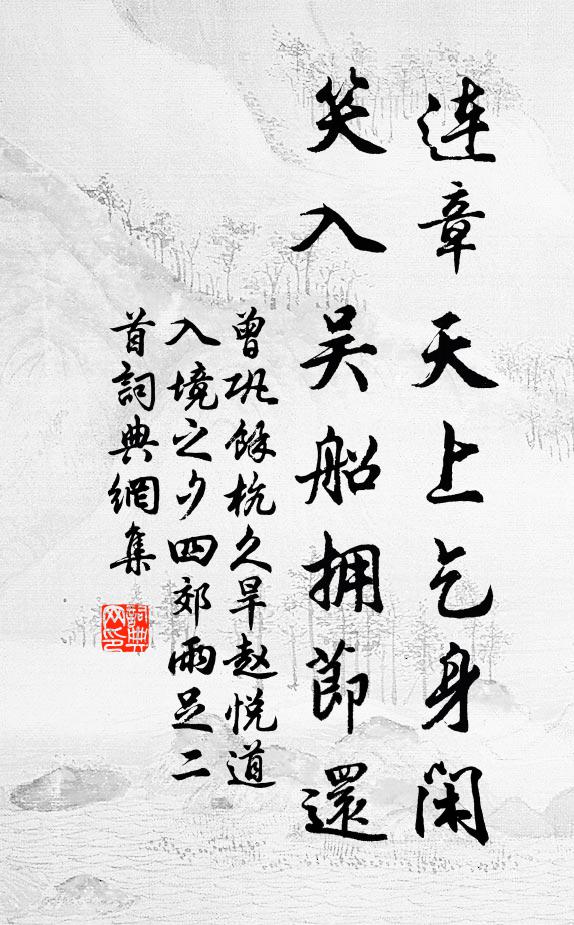 连章天上乞身闲
笑入吴船拥節還
曾巩餘杭久旱赵悦道
入境之夕四郊雨足二
首詞典網集
詞典
网印